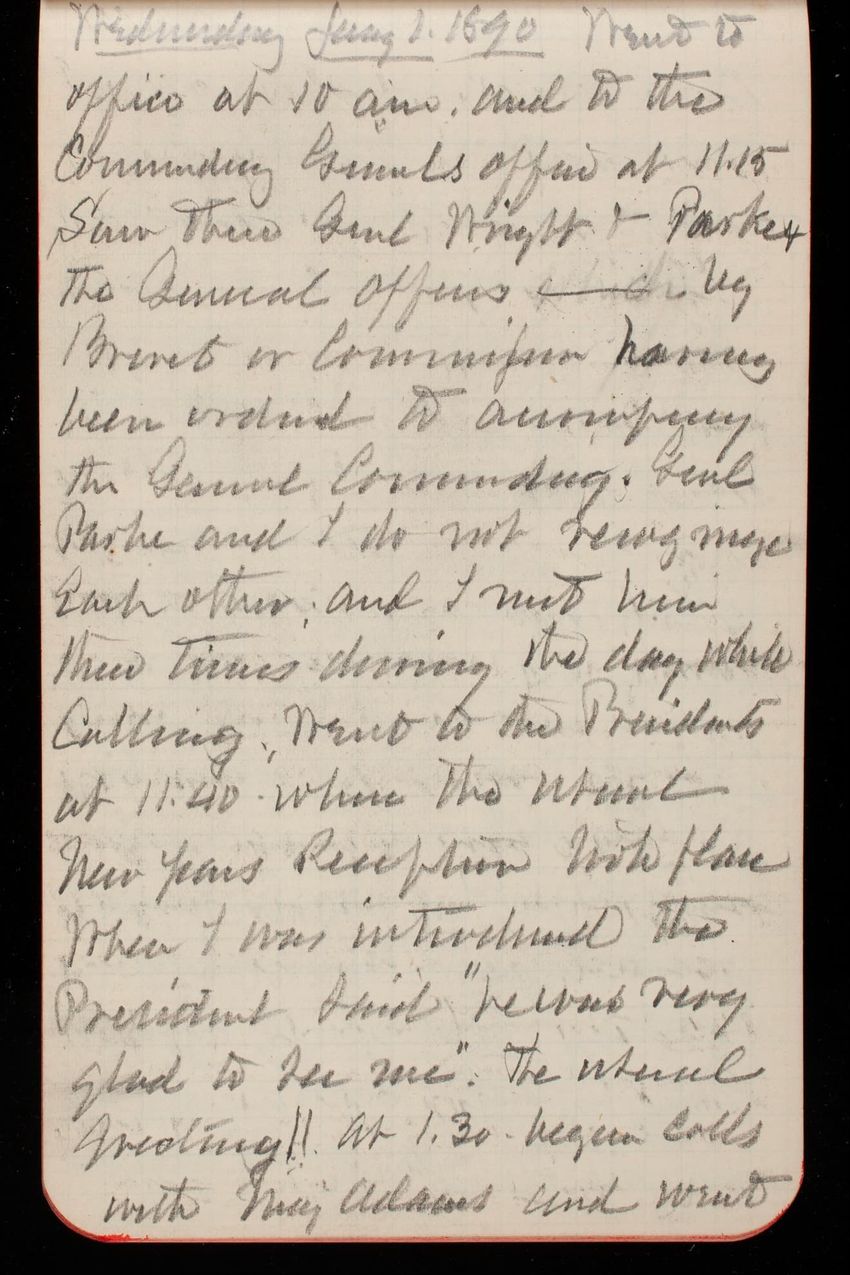 Wednesday Jany 1. 1890 Went to
office at 10 am. and to the
Commanding Generals office at 11.15
Saw there Genl Wright & Parke &
the General officers by
Brevet or Commission having
been ordered to accompany
the General Commanding. Genl
Parke and I do not recognize
Each other, and I met him
three times during the day while
Calling. Went to the Presidents
at 11.40. where the usual
New Years Reception took place
When I was introduced the
President said "he was very
glad to see me". The usual
Greeting!! At 1.30. began calls
with Maj Adams and went